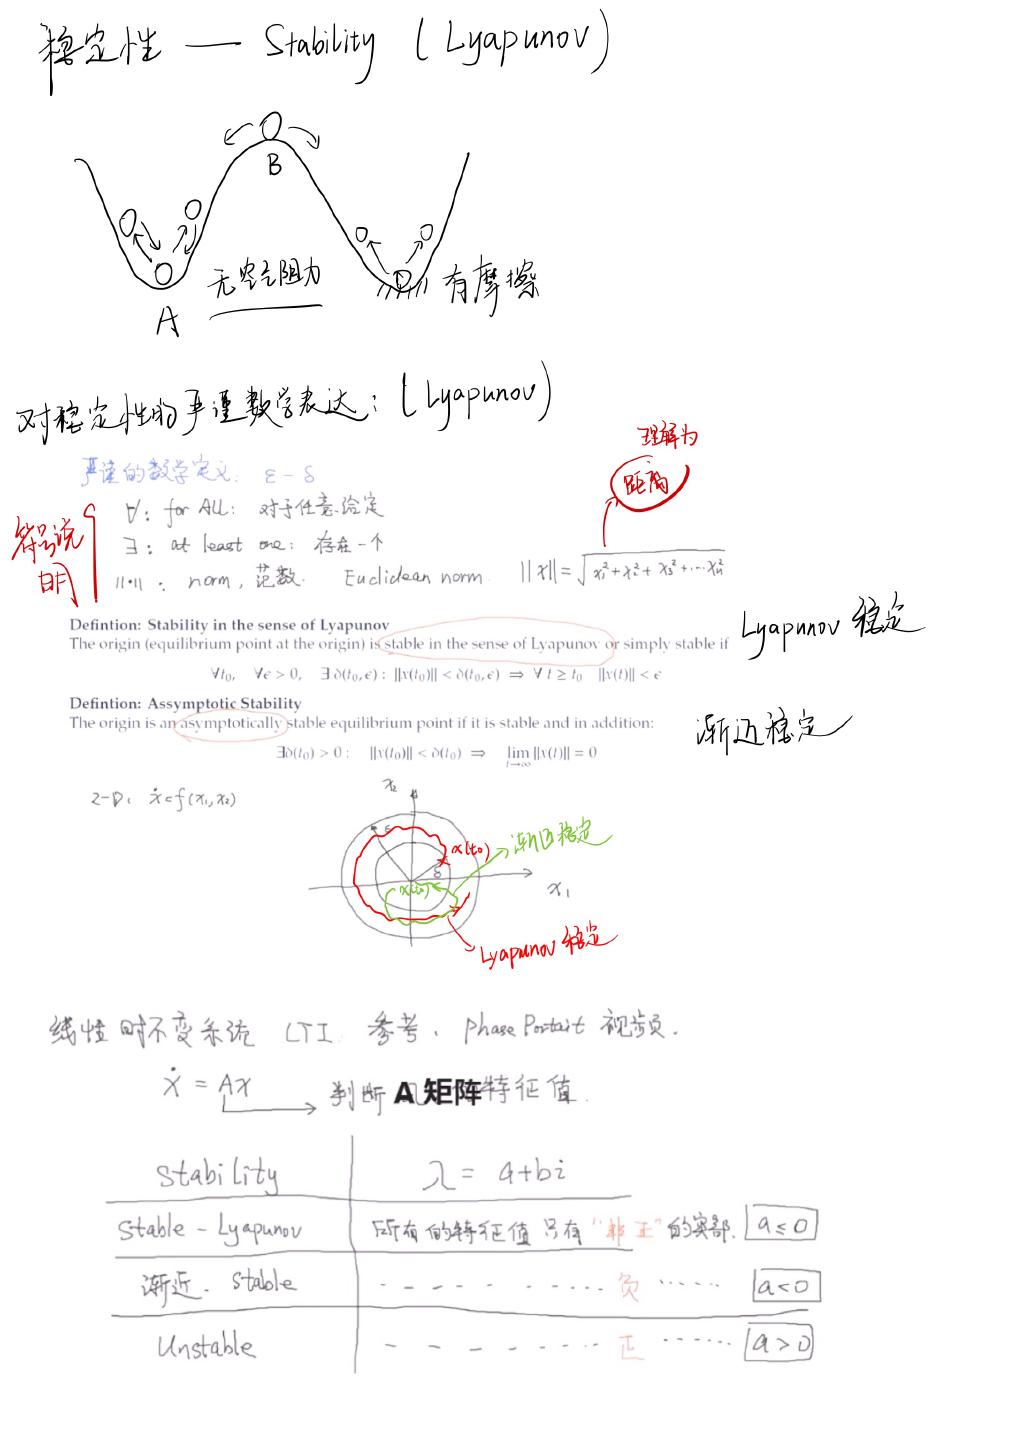 稳定性 — Stability (Lyapunov)
B
无空气阻力
有摩擦
A
对稳定性的严谨数学表达：(Lyapunov)
理解为
距离
严谨的数学定义： ε-δ
符号说明
∀: for ALL: 对于任意给定
∃: at least one: 存在一个
||·||: norm, 范数. Euclidean norm. ||x|| = √x₁²+x₂²+x₃²+...xₙ²
Defintion: Stability in the sense of Lyapunov
The origin (equilibrium point at the origin) is stable in the sense of Lyapunov or simply stable if
Lyapunov 稳定
∀t₀, ∀ϵ > 0, ∃ δ(t₀,ϵ) : ||x(t₀)|| < δ(t₀,ϵ) ⇒ ∀ t ≥ t₀ ||x(t)|| < ϵ
Defintion: Assymptotic Stability
The origin is an asymptotically stable equilibrium point if it is stable and in addition:
渐近稳定
∃δ(t₀) > 0 : ||x(t₀)|| < δ(t₀) ⇒ lim t→∞ ||x(t)|| = 0
2-D: ẋ=f(x₁,x₂)
x₂
ε
x(t₀)
渐近稳定
δ
x(t₀)
x₁
Lyapunov 稳定
线性时不变系统 LTI. 参考: Phase Portait 视频.
ẋ = Ax
判断 A 矩阵特征值.
Stability λ = a+bi
Stable - Lyapunov 所有的特征值只有“非正”的实部. a≤0
渐近. Stable 负 a<0
Unstable 正 a>0